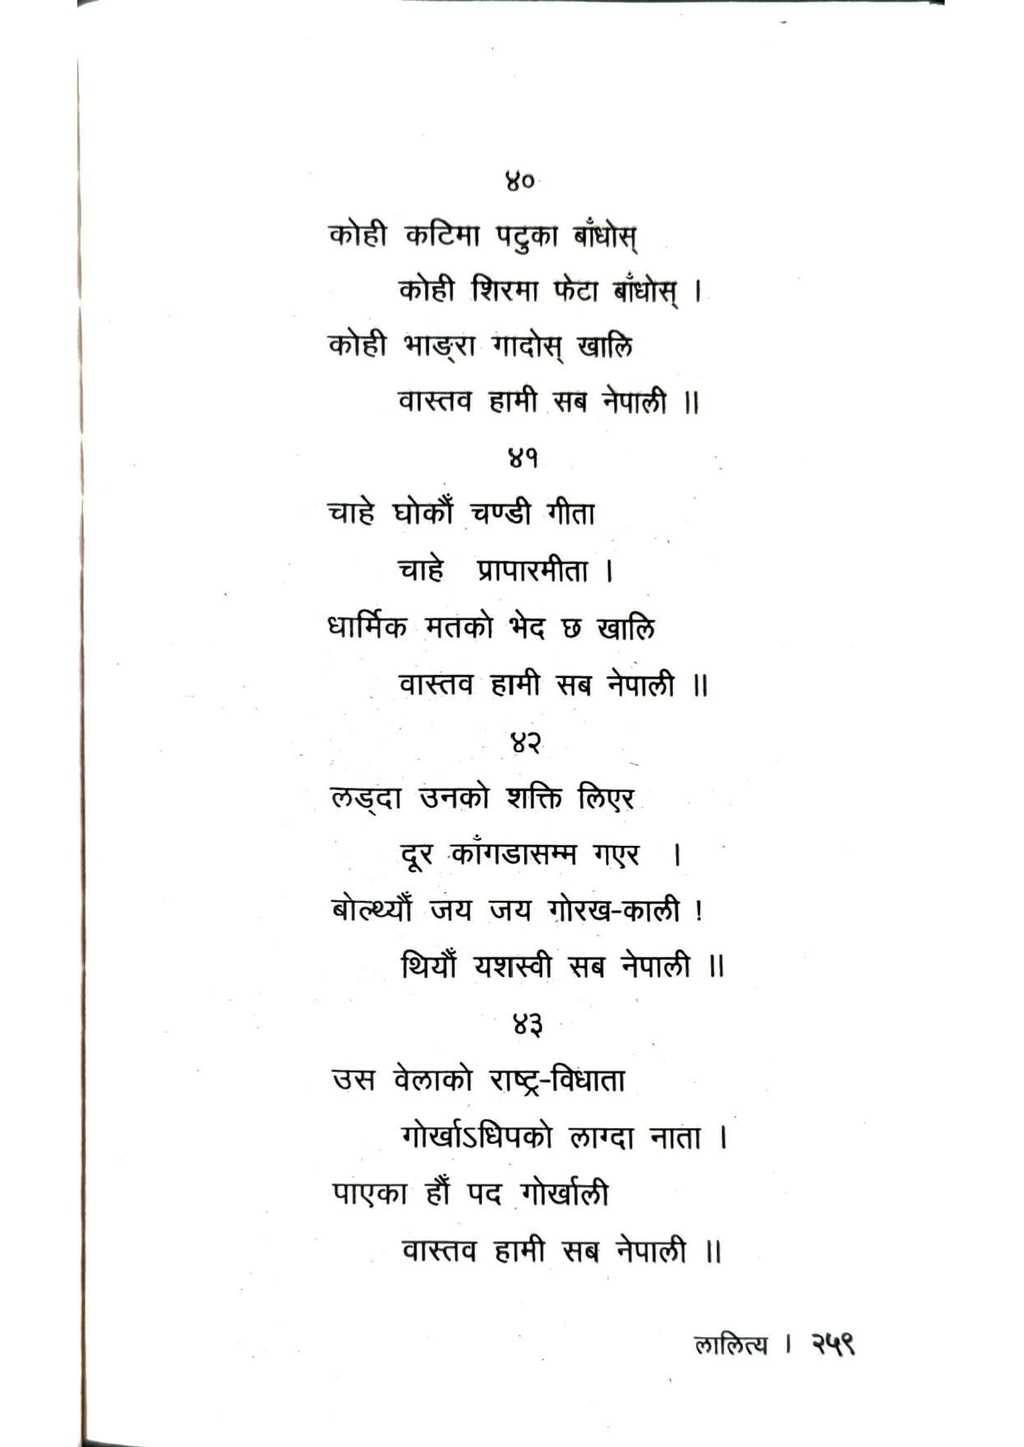 ४०
कोही कटिमा पटुका बाँधोस्
कोही शिरमा फेटा बाँधोस् ।
कोही भाङ्रा गादोस् खालि
वास्तव हामी सब नेपाली ॥
४१
चाहे घोकौँ चण्डी गीता
चाहे प्रापारमीता ।
धार्मिक मतको भेद छ खालि
वास्तव हामी सब नेपाली ॥
४२
लड्दा उनको शक्ति लिएर
दूर काँगडासम्म गएर ।
बोल्थ्यौँ जय जय गोरख-काली !
थियौँ यशस्वी सब नेपाली ॥
४३
उस वेलाको राष्ट्र-विधाता
गोर्खाऽधिपको लाग्दा नाता ।
पाएका हौँ पद गोर्खाली
वास्तव हामी सब नेपाली ॥
लालित्य । २५९